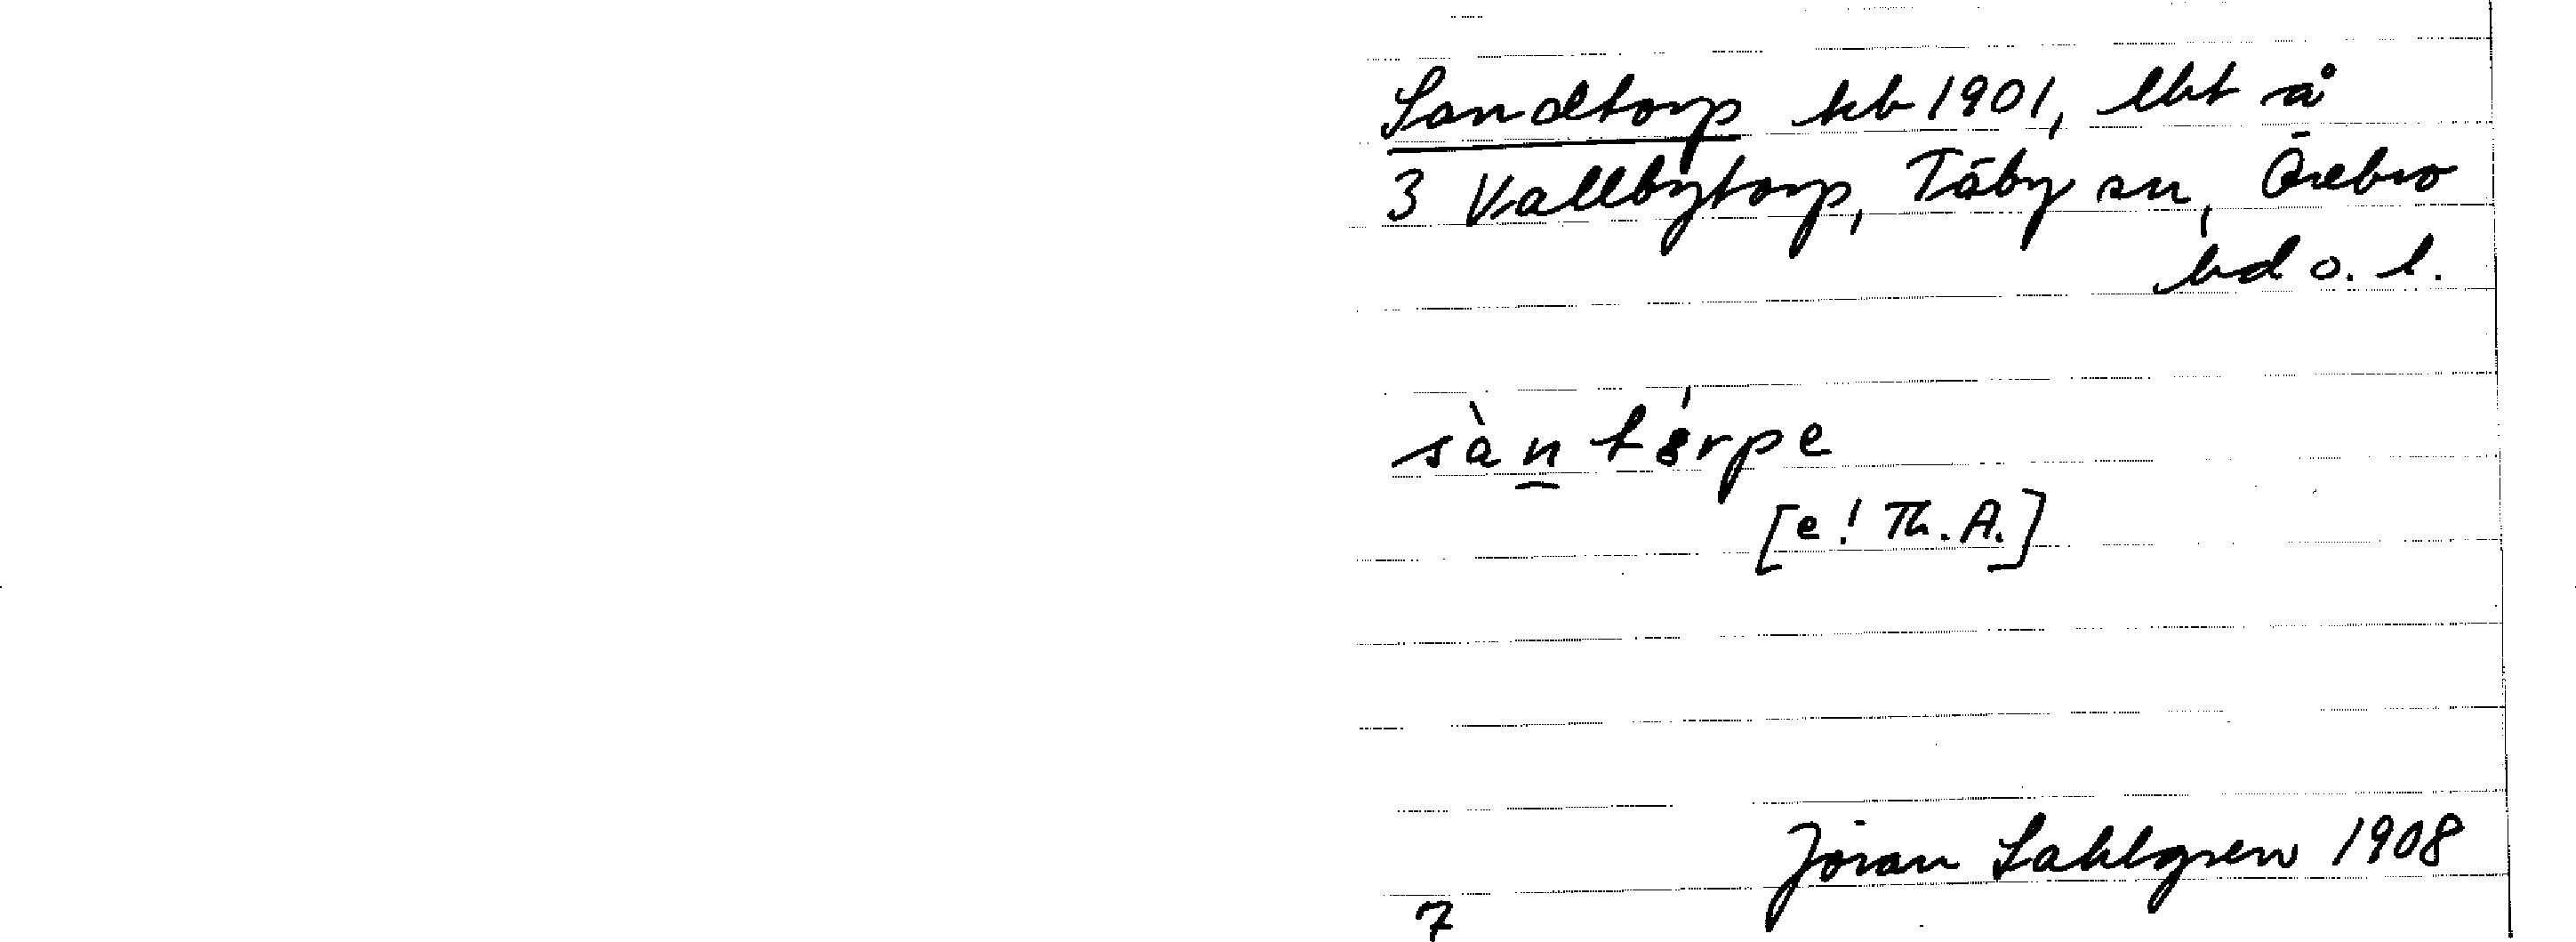 Sandtorp kb 1901, lht å
3 Vallbytorp, Täby sn, Örebro
hd o. l.
sàn tɵ́rpe
[e! Th. A.]
Jöran Sahlgren 1908
7